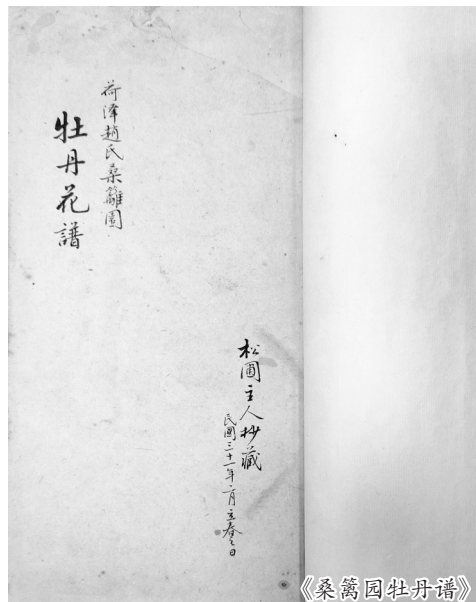 荷泽趙氏桑籬園
牡丹花譜
松圃主人抄藏
民國三十一年二月立春之日
《桑篱园牡丹谱》